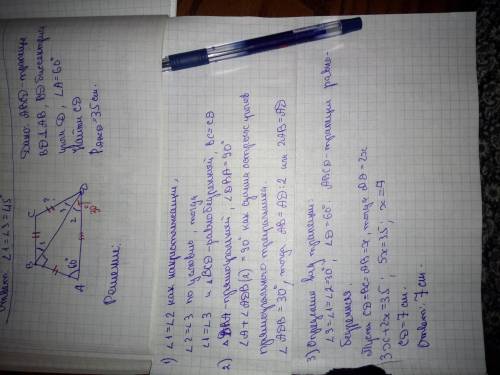 Ответ: ∠1=∠3=45°
Дано: ABCD-трапеция
BD⊥AB, BD биссектриса
угла D, ∠A=60°
Найти CD
Pавсд=35 см.
B
C
D
A
1
2
3
60°
?
Решение:
1) ∠1=∠2 как накрестлежащие,
∠2=∠3 по условию, тогда
∠1=∠3 и △BCD-равнобедренный, BC=CD
2) △DBA прямоугольный, ∠DBA=90°
∠A+∠ADB(2)=90° как сумма острых углов
прямоугольного треугольника.
∠ADB=30°, тогда AB=AD:2 или 2AB=AD
3) Определяю вид трапеции:
∠3=∠1=∠2=30°, ∠D=60°. ABCD-трапеция равно-
бедренная.
Пусть CD=BC=AB=x, тогда AD=2x
3x+2x=35; 5x=35; x=7
CD=7 см.
Ответ: 7 см.